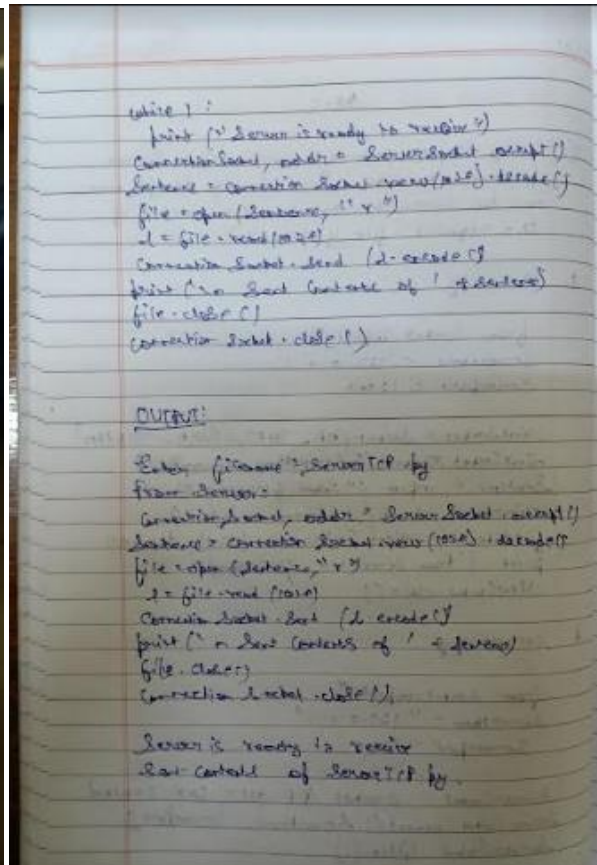 while 1 :
print (" Server is ready to receive ")
Connection Socket, addr = Server Socket. accept ()
Sentence = connection Socket. recv (1024). decode ()
file = open (Sentence, " r ")
l = file . read (1024)
Connection Socket . Send (l. encode ()
print (' \n Sent Contents of ' + Sentence)
file . close ()
connection Socket . close ( )
OUTPUT:
Enter filename : ServerTCP .py
From Server :
Connection Socket, addr = Server Socket . accept ()
Sentence = connection Socket. recv (1024) . decode ()
file = open (Sentence, " r ")
l = file . read (1024)
Connection Socket . Sent (l. encode ()
print (' \n Sent Contents of ' + Sentence)
file . close ()
Connection Socket . close ( )
Server is ready to receive
Sent Contents of ServerTCP .py